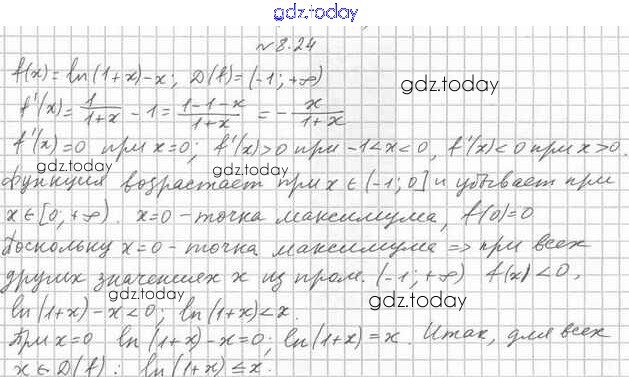 gdz.today
№8.24
f(x)=ln(1+x)-x; D(f)=(-1;+∞)
gdz.today
f'(x)=1/(1+x) -1 = (1-1-x)/(1+x) = - x/(1+x)
f'(x)=0 при x=0; f'(x)>0 при -1<x<0, f'(x)<0 при x>0.
gdz.today
gdz.today
Функция возрастает при x∈(-1;0] и убывает при
x∈[0;+∞). x=0 - точка максимума, f(0)=0
Поскольку x=0 - точка максимума => при всех
gdz.today
других значениях x из пром. (-1;+∞) f(x)<0,
gdz.today
gdz.today
ln(1+x)-x<0; ln(1+x)<x.
При x=0 ln(1+x)-x=0; ln(1+x)=x. Итак, для всех
x∈D(f): ln(1+x)≤x.